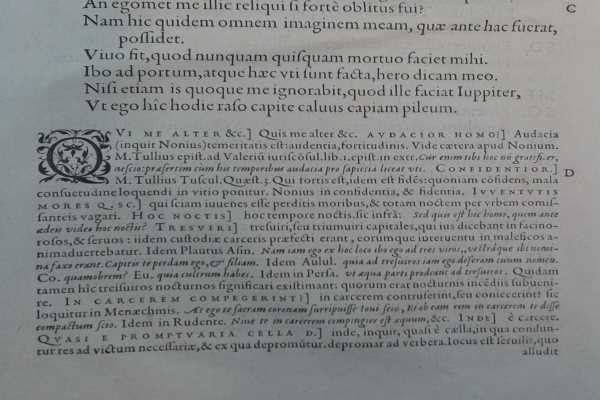 An egomet me illic reliqui si fortè oblitus fui?
C
Nam hîc quidem omnem imaginem meam, quæ ante hac fuerat,
possidet.
Viuo fit, quod nunquam quisquam mortuo faciet mihi.
Ibo ad portum, atque hæc vti sunt facta, hero dicam meo.
Nisi etiam is quoque me ignorabit, quod ille faciat Iuppiter,
Vt ego hîc hodie raso capite caluus capiam pileum.
QVI ME ALTER &c.] Quis me alter &c. AVDACIOR HOMO:] Audacia
(inquit Nonius) temeritatis est: audentia, fortitudinis. Vide cætera apud Nonium.
M. Tullius epist. ad Valeriũ iuriscōsul. lib. 1. epist. in extr. Cur enim tibi hoc nō gratificer,
nescio: præsertim cùm his temporibus audacia pro sapientia liceat vti. CONFIDENTIOR.]
D
M. Tullius Tuscul. Quæst. 3. Qui fortis est, idem est fidēs: quoniam cōfidens, mala
consuetudine loquendi in vitio ponitur. Nonius in confidentia, & fidentia. IVVENTVTIS
MORES Q. SC.] qui sciam iuuenes esse perditis moribus, & totam noctem per vrbem comis-
santeis vagari. HOC NOCTIS] hoc tempore noctis. sic infrà: Sed quis est hic homo, quem ante
ædeis video hoc noctis? TRESVIRI] tresuiri, seu triumuiri capitales, qui ius dicebant in facino-
rosos, & seruos: iidem custodiæ carceris præfecti erant, eorumque interuentu in maleficos a-
nimaduertebatur. Idem Plautus Asin. Nam iam ego ex hoc loco ibo ego ad treis viros, vestráque ibi nomi-
na faxo erant. Capitis te perdam ego, & filiam. Idem Aulul. quia ad tresuiros iam ego deferam tuum nomen.
Co. quamobrem? Eu. quia cultrum habes. Idem in Persa. vt æqua parti prodeant ad tresuiros. Quidam
tamen hîc tresuiros nocturnos significari existimant: quorum erat nocturnis incēdiis subueni-
re. IN CARCEREM COMPEGERINT:] in carcerem contruserint, seu coniecerint: sic
loquitur in Menæchmis. At ego te sacram coronam surripuisse Ioui scio, Et ob eam rem in carcerem te esse
compactum scio. Idem in Rudente. Niue te in carcerem compingier est æquum, &c. INDE] è carcere.
QVASI E PROMPTVARIA CELLA D.] inde, inquit, quasi è cælla, in qua condun-
tur res ad victum necessariæ, & ex qua depromūtur. depromar ad verbera. locus est seruilis, quo
alludit